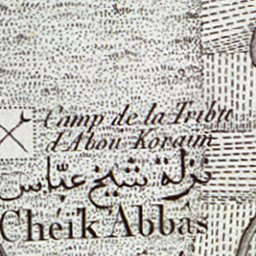 Camp de la Tribu
d'Abou Koraim
نزلة شيخ عبّاس
Cheik Abbâs